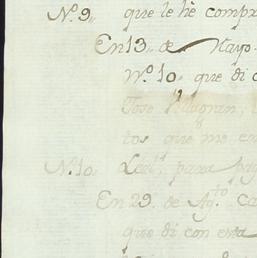 Nº. 9. que le hè compr
En 13. de Mayo.
Nº. 10. que di a
Jose Villagran,
tos que me en
Nº. 10. para pag
En 29. de Ag.to ca
que di con esta